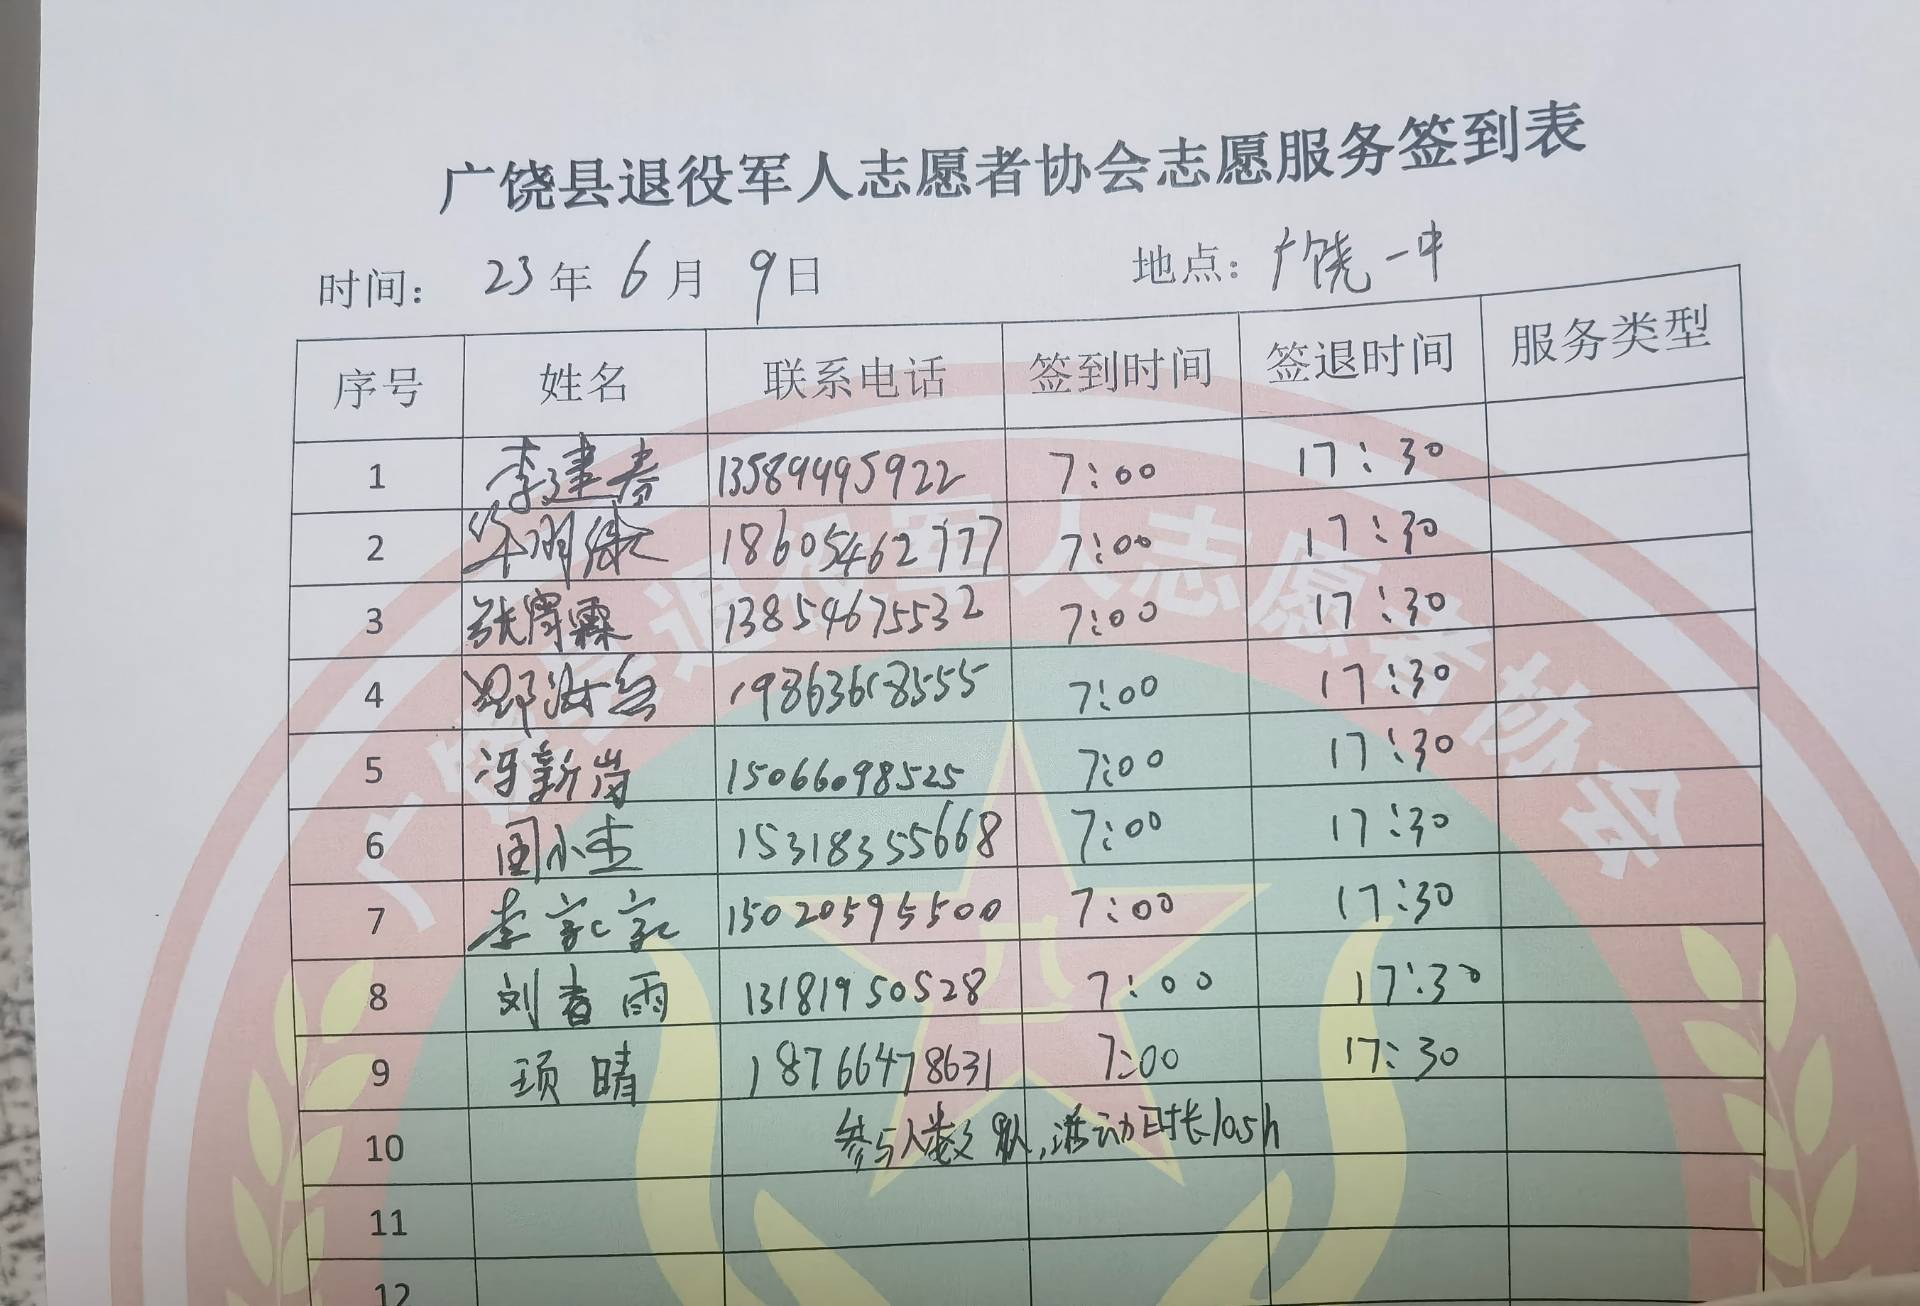 广饶县退役军人志愿者协会志愿服务签到表
时间: 23年6月9日 地点: 广饶一中
序号 姓名 联系电话 签到时间 签退时间 服务类型
1 李建春 13589495922 7:00 17:30
2 18605462777 7:00 17:30
3 张 霖 13854675532 7:00 17:30
4 19863618555 7:00 17:30
5 冯新岗 15066098525 7:00 17:30
6 周小杰 15318355668 7:00 17:30
7 李 15020595500 7:00 17:30
8 刘春雨 13181950528 7:00 17:30
9 顼晴 18766478631 7:00 17:30
10 参与人数9人,活动时长10.5h
11
12
广饶县退役军人志愿者协会
八一